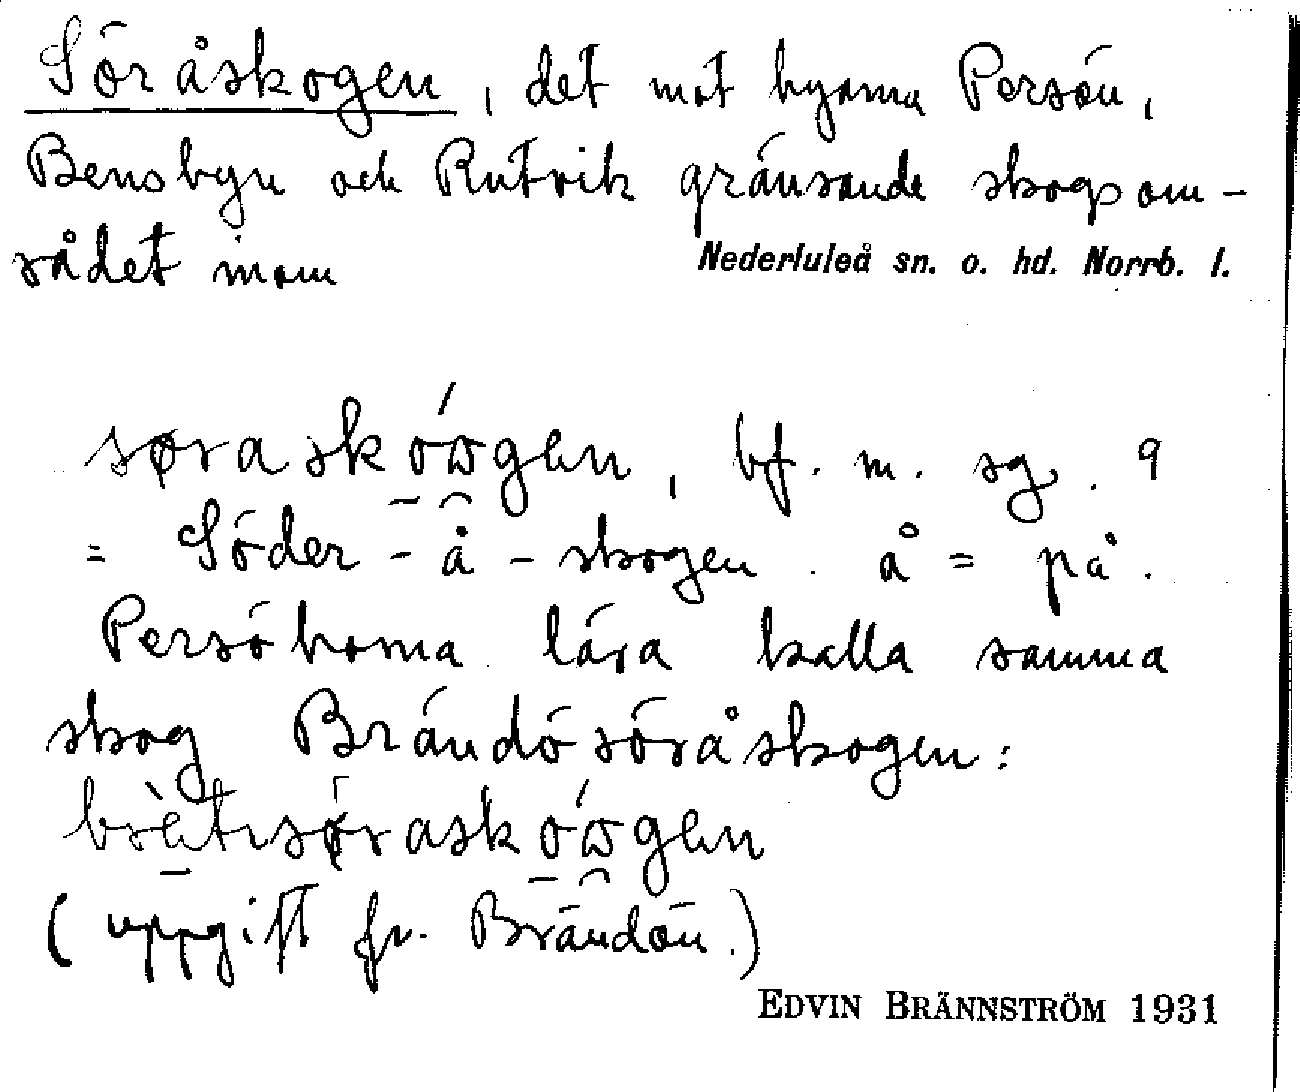 Söråskogen, det mot byarna Persön,
Bensbyn och Rutvik gränsande skogsom-
rådet inom Nederluleå sn. o. hd. Norrb. l.
bf. m. sg. 9
= Söder-å-skogen. å = på.
Persöborna lära kalla samma
skog Brändösöråskogen:
(uppgift fr. Brändön.)
EDVIN BRÄNNSTRÖM 1931